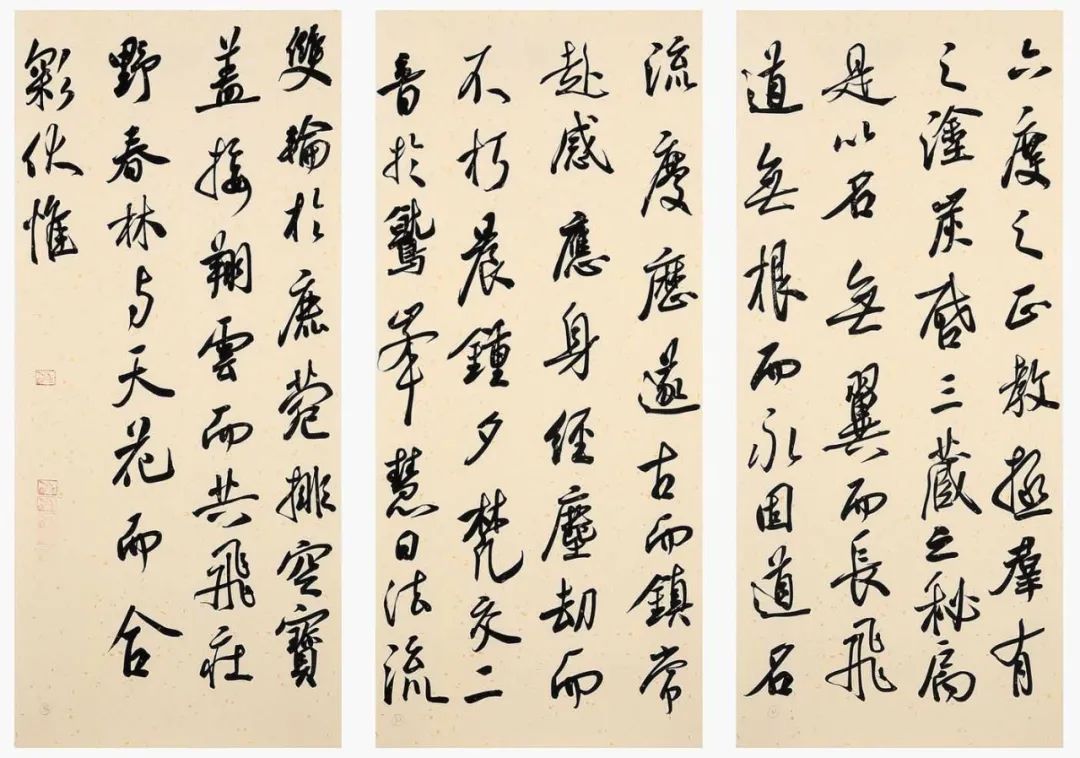 六度之正教拯羣有
之塗炭啓三藏之秘扃
是以名無翼而長飛
道無根而永固道名
流慶歷遂古而鎮常
赴感應身經塵劫而
不朽晨鍾夕梵交二
音於鷲峯慧日法流
雙輪於鹿菀排空寶
蓋接翔雲而共飛莊
野春林與天花而合
彩伏惟